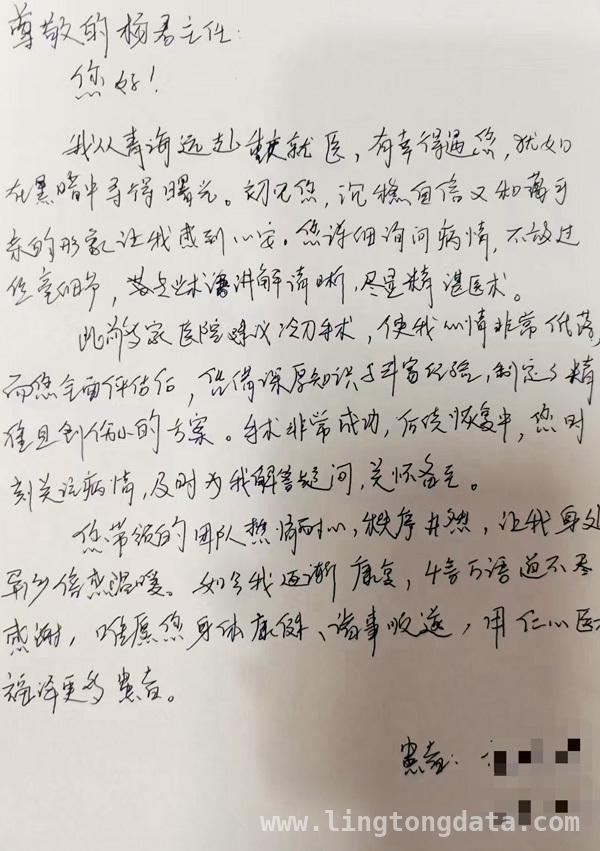 尊敬的杨君主任:
您好!
我从青海远赴重庆就医,有幸得遇您,犹如
在黑暗中寻得曙光。初见您,沉稳自信又和蔼可
亲的形象让我感到心安。您详细询问病情,不放过
任毫细节,专业术语讲解清晰,尽显精湛医术。
此前多家医院建议冷刀手术,使我心情非常低落,
而您全面评估后,凭借深厚知识与丰富经验,制定了精
准且创伤小的方案。手术非常成功,后续恢复中,您时
刻关注病情,及时为我解答疑问,关怀备至。
您带领的团队热情耐心,秩序井然,让我身处
异乡倍感温暖。如今我逐渐康复,千言万语道不尽
感谢,唯愿您身体康健、诸事顺遂,用仁心医
福泽更多患者。
患者:
www.lingtongdata.com